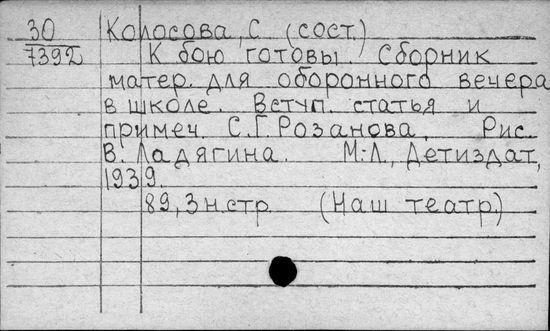 30 Колосова, С (сост.)
7392 К бою готовы. Сборник
матер. для оборонного вечера
в школе. Вступ. статья и
примеч. С.Г. Розанова. Рис.
В. Ладягина. М.-Л., Детиздат,
1939.
89, 3 н.стр. (Наш театр.)